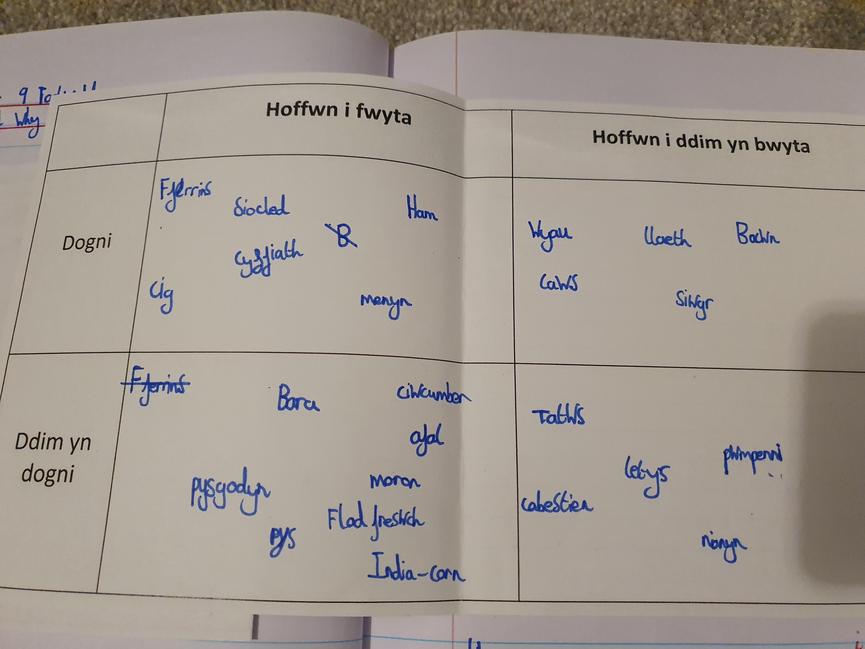 Why
Hoffwn i fwyta
Hoffwn i ddim yn bwyta
Dogni
Fferins
Siocled
Ham
cyffiath
Cig
menyn
Wyau
llaeth
Bacwn
Caws
Siwgr
Ddim yn
dogni
Fferins
Bara
ciwcumber
afal
pysgodyn
moron
pys
Flad freswch
India-corn
Tatws
letys
pwmpenni
cabestien